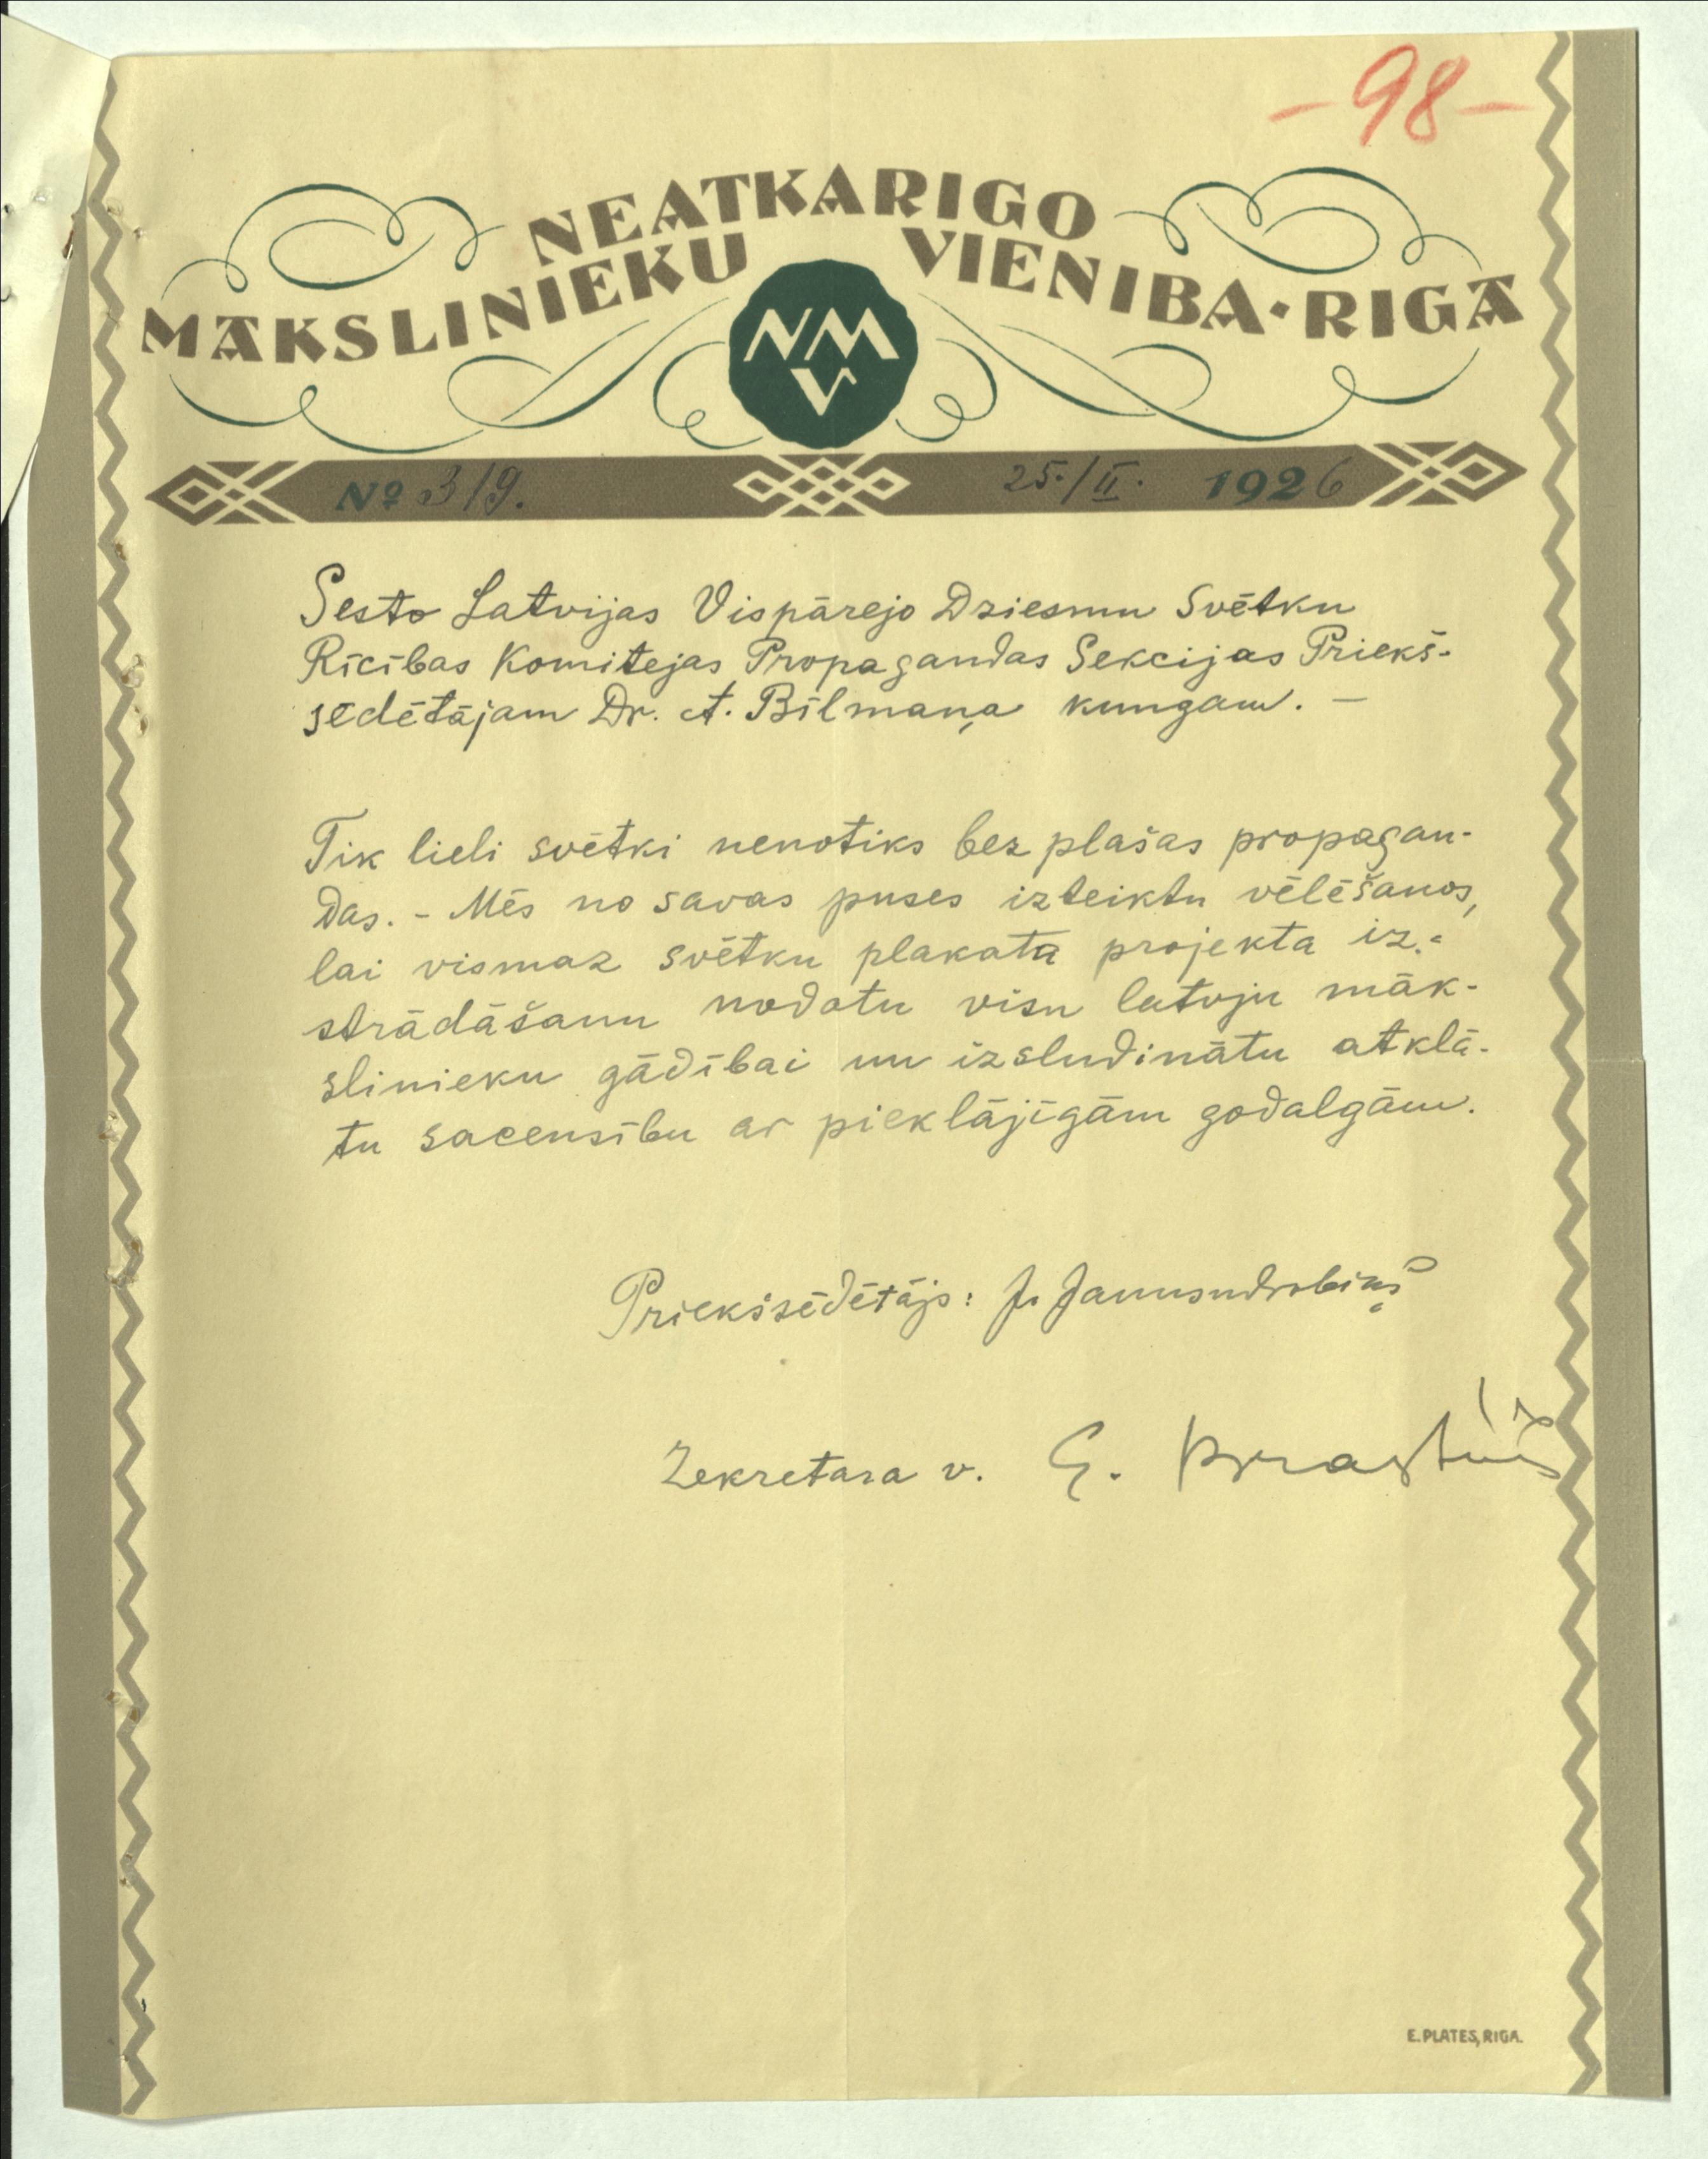 -98-
NEATKARIGO
MAKSLINIEKU VIENIBA·RIGĀ
NMV
№ 3/9. 25./II. 1926
Sesto Latvijas Vispārejo Dziesmu Svētku
Rīcības Komitejas Propagandas Sekcijas Priekš-
sēdētājam Dr. A. Bīlmaņa kungam. —
Tik lieli svētki nenotiks bez plašas propagan-
das. - Mēs no savas puses izteiktu vēlēšanos,
lai vismaz svētku plakata projekta iz-
strādāšanu nodotu visu latvju māk-
slinieku gādībai un izsludinātu atklā-
tu sacensību ar pieklājīgām godalgām.
Priekšsēdētājs: J. Jaunsudrabiņš
Zekretara v. E. Brastiņš
E. PLATES, RIGA.